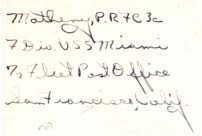 Matheny, P.R. F.C. 3c
7 Div. USS Miami
% Fleet Post Office
San Francisco, Calif.